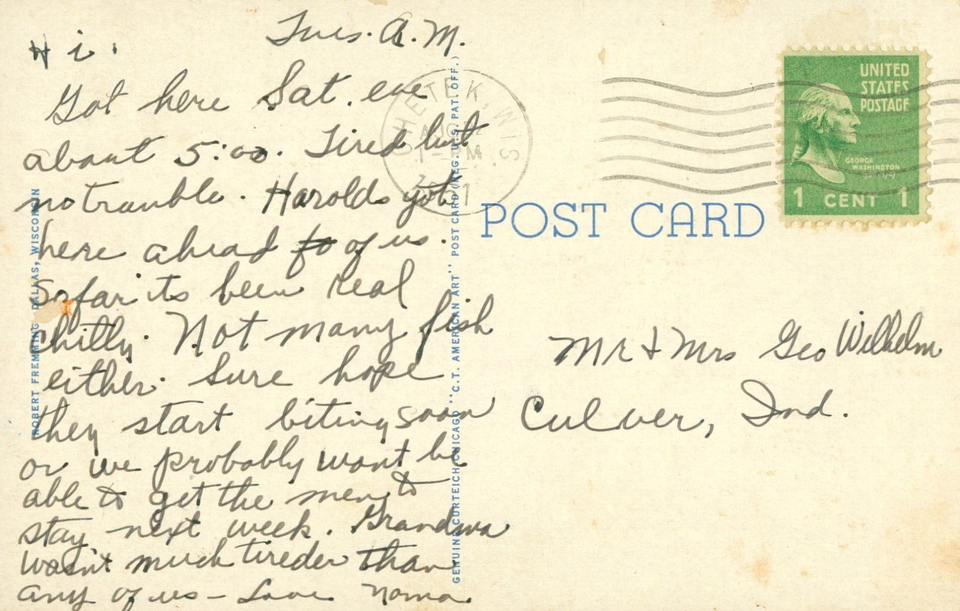 Hi. Tues. A.M.
Got here Sat. eve
about 5:00. Tired but
no trouble. Harolds got
here ahead to of us.
So far its been real
chilly. Not many fish
either. Sure hope
they start biting soon
or we probably want be
able to get the men to
stay next week. Grandma
wasn't much tireder than
any of us - Love Norma.
ROBERT FREMMING, DALLAS, WISCONSIN
GENUINE CURTEICH-CHICAGO "C.T. AMERICAN ART" POST CARD (REG. U.S. PAT. OFF.)
CHETEK, WIS.
AUG
1951
UNITED
STATES
POSTAGE
GEORGE
WASHINGTON
1 CENT 1
POST CARD
Mr & Mrs Geo Wilhelm
Culver, Ind.